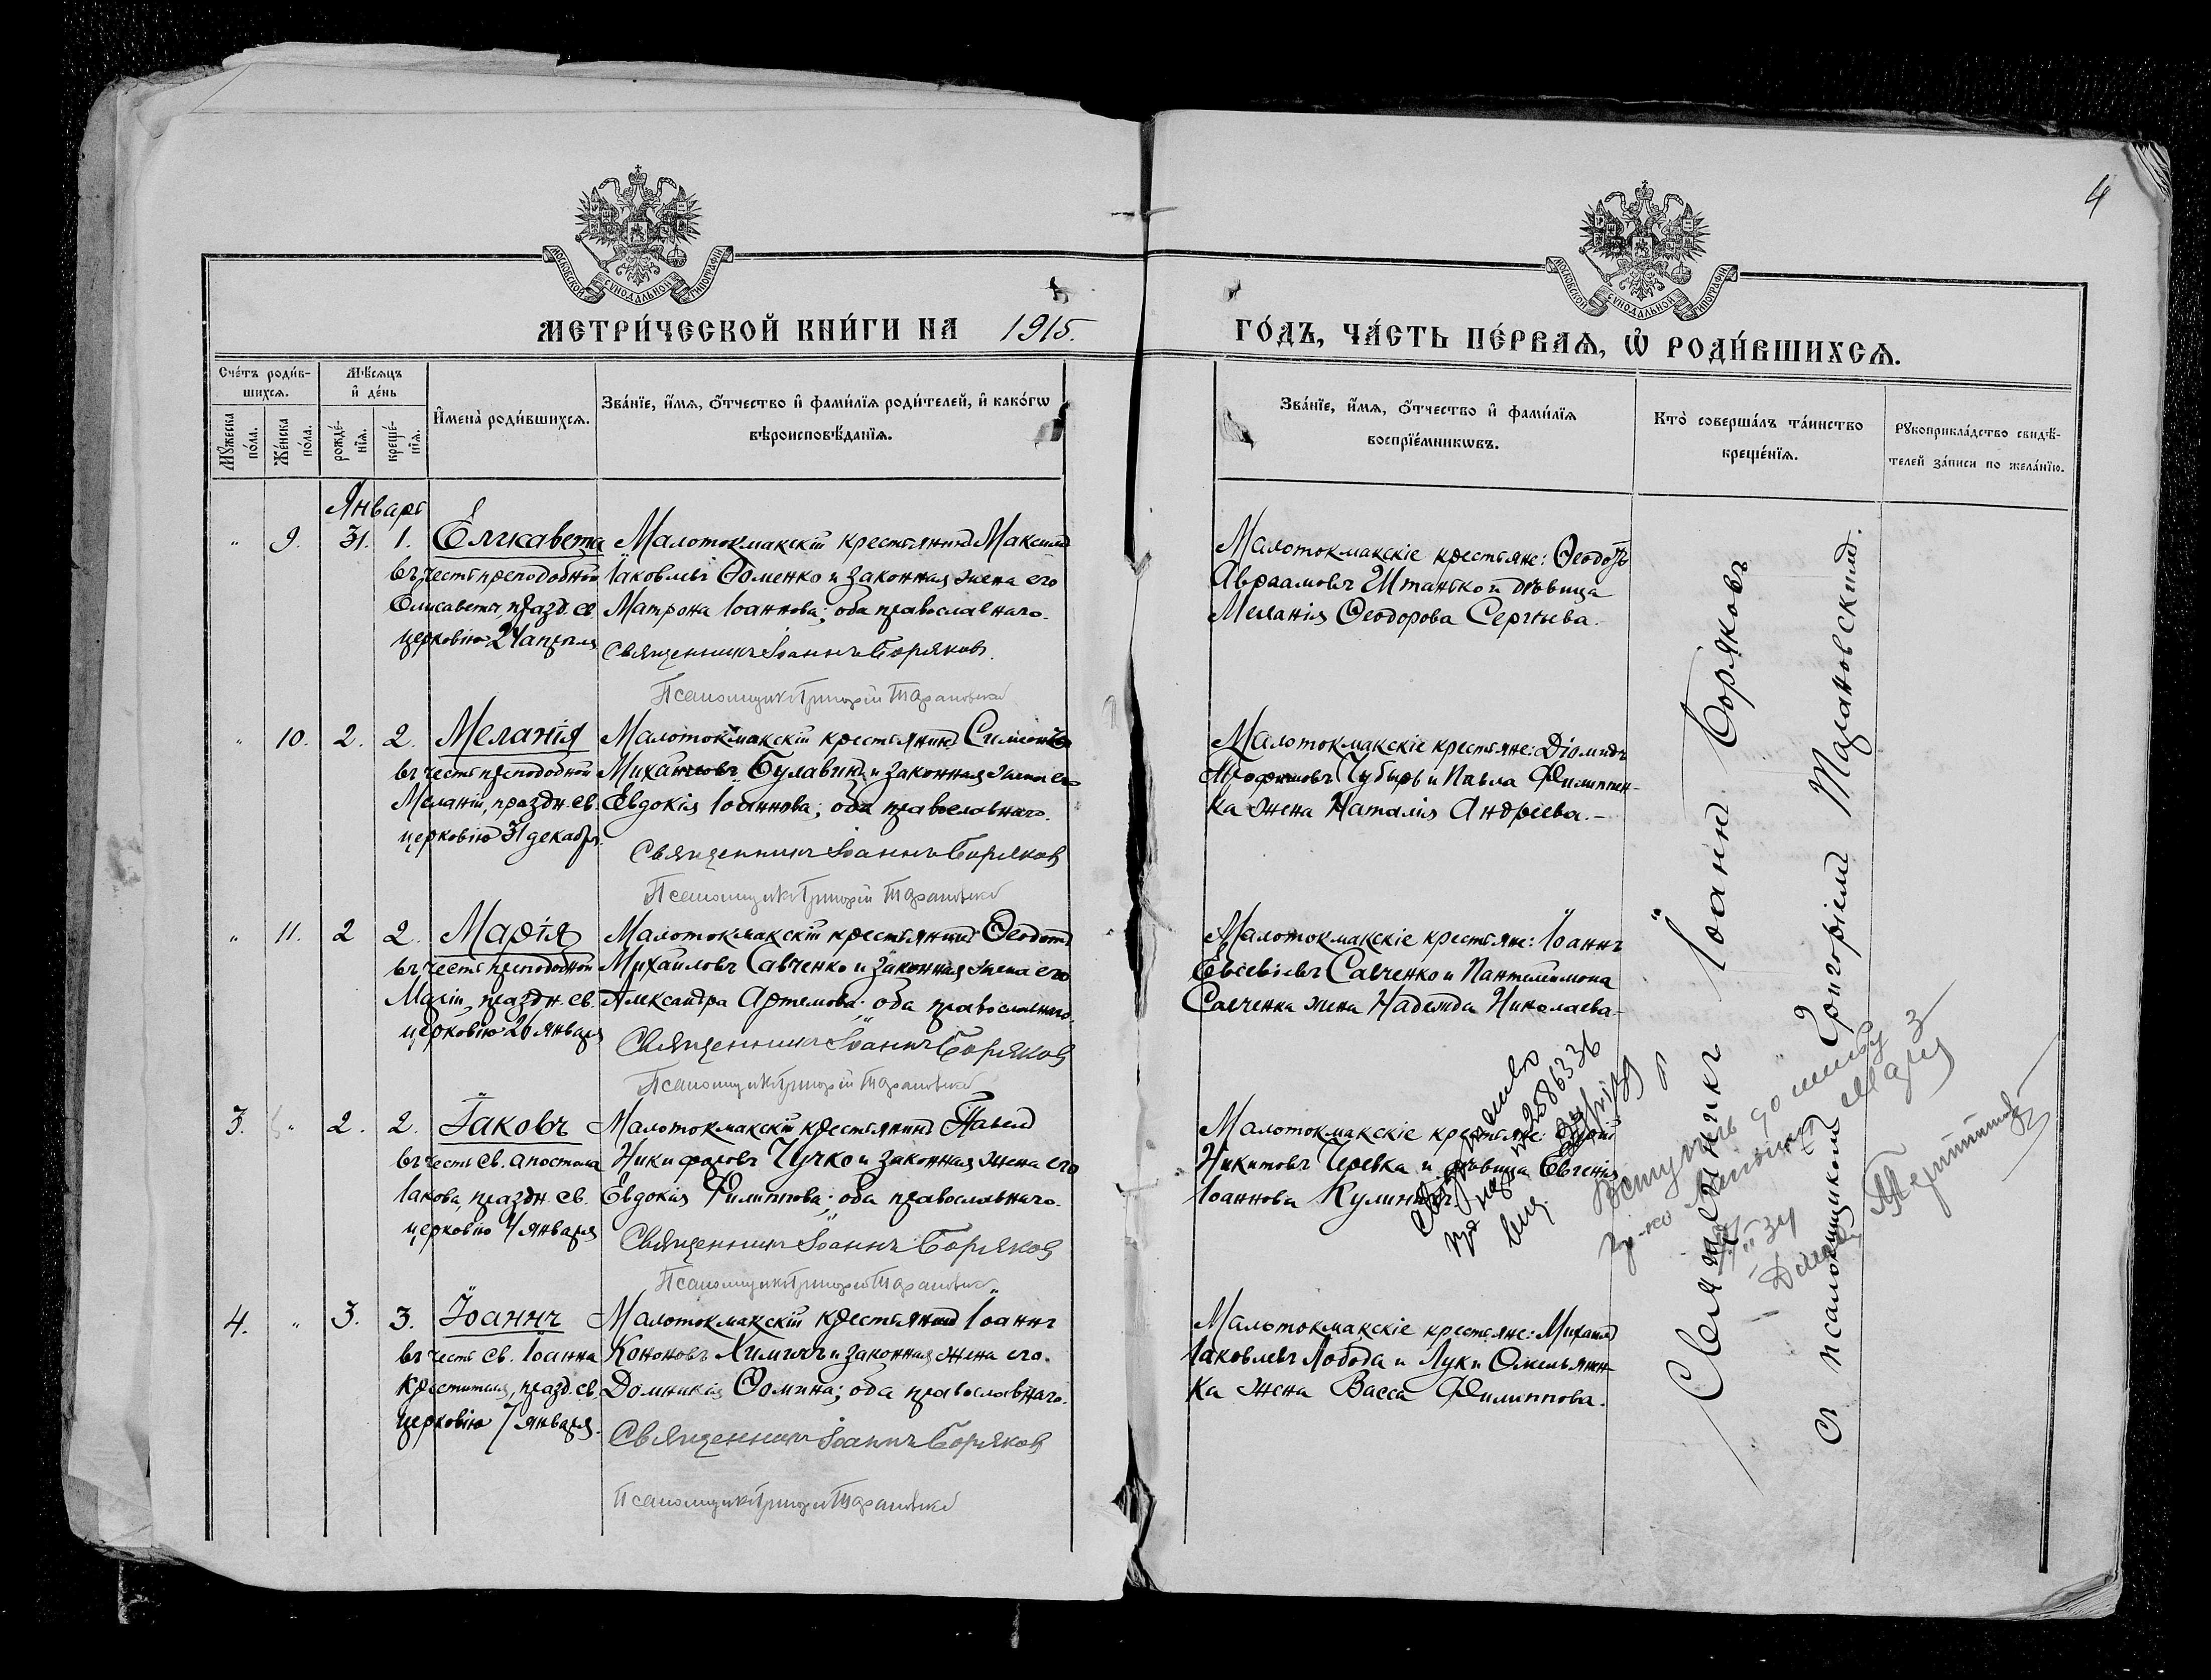 4
МОСКОВСКОЙ СУНОДАЛЬНОЙ ТИПОГРАФІИ
МОСКОВСКОЙ СУНОДАЛЬНОЙ ТИПОГРАФІИ
МЕТРИ́ЧЕСКОЙ КНИ́ГИ НА 1915.
ГО́ДЪ, ЧА́СТЬ ПЕ́РВАѦ, Ѡ РОДИ́ВШИХСѦ.
Сче́тъ роди́в-
шихсѧ.
Мѣсѧцъ
и де́нь
Мꙋжеска по́ла.
Же́нска по́ла.
рожде́-
нїѧ.
креще́-
нїѧ.
Имена̀ роди́вшихсѧ.
Зва́нїе, и́мѧ, о́тчество и фами́лїѧ роди́телей, и како́гѡ
вѣроисповѣ́данїѧ.
Зва́нїе, и́мѧ, о́тчество и фами́лїѧ
воспрїе́мникѡвъ.
Кто̀ соверша́лъ та́инство
креще́нїѧ.
Рꙋкоприкла́дство свидѣ́-
телей за́писи по жела́нїю.
Январь
" 9. 31. 1. Елисавета
въ честь преподобной
Елисаветы, празд. св.
церковію 24 апрѣля
Малотокмакскій крестьянинъ Максимъ
Іаковлевъ Ѳоменко и законная жена его
Матрона Іоаннова; оба православнаго.
Священникъ Іоаннъ Боряковъ.
Псаломщикъ Григорій Тарановскій
Малотокмакскіе крестьяне: Ѳеодоръ
Авраамовъ Штанько и дѣвица
Меланія Ѳеодорова Сергѣева.
" 10. 2. 2. Меланія
въ честь преподобной
Меланіи, праздн. св.
церковію 31 декабря.
Малотокмакскій крестьянинъ Симеонъ
Михаиловъ Булавинъ и законная жена его
Евдокія Іоаннова; оба православнаго.
Священникъ Іоаннъ Боряковъ
Псаломщикъ Григорій Тарановскій
Малотокмакскіе крестьяне: Діомидъ
Трофимовъ Чубырь и Павла Филиппен-
ка жена Наталія Андреева.-
" 11. 2 2. Марія
въ честь преподобной
Маріи, праздн. св.
церковію 26 января
Малотокмакскій крестьянинъ Ѳеодотъ
Михаиловъ Савченко и законная жена его
Александра Артемова; оба православнаго.
Священникъ Іоаннъ Боряковъ
Псаломщикъ Григорій Тарановскій
Малотокмакскіе крестьяне: Іоаннъ
Евсевіевъ Савченко и Пантилимона
Савченка жена Надежда Николаева-
3. " 2. 2. Іаковъ
въ честь св. апостола
Іакова, праздн. св.
церковію 4 января
Малотокмакскій крестьянинъ Павелъ
Никифоровъ Чучко и законная жена его
Евдокія Филиппова; оба православнаго.
Священникъ Іоаннъ Боряковъ
Псаломщикъ Григорій Тарановскій
Малотокмакскіе крестьяне:
Никитовъ Черевка и дѣвица Евгенія
Іоаннова Кулинич
4. " 3. 3. Іоаннъ
въ честь св. Іоанна
Крестителя, празд. св.
церковію 7 января.
Малотокмакскій крестьянинъ Іоаннъ
Кононовъ Химичъ и законная жена его.
Домникія Ѳомина; оба православнаго.
Священникъ Іоаннъ Боряковъ
Псаломщикъ Григорій Тарановскій
Малотокмакскіе крестьяне: Михаилъ
Іаковлевъ Лобода и Луки Омельянен-
ка жена Васса Филиппова.
Священникъ Іоаннъ Боряковъ
съ псаломщикомъ Григоріемъ Тарановскимъ.